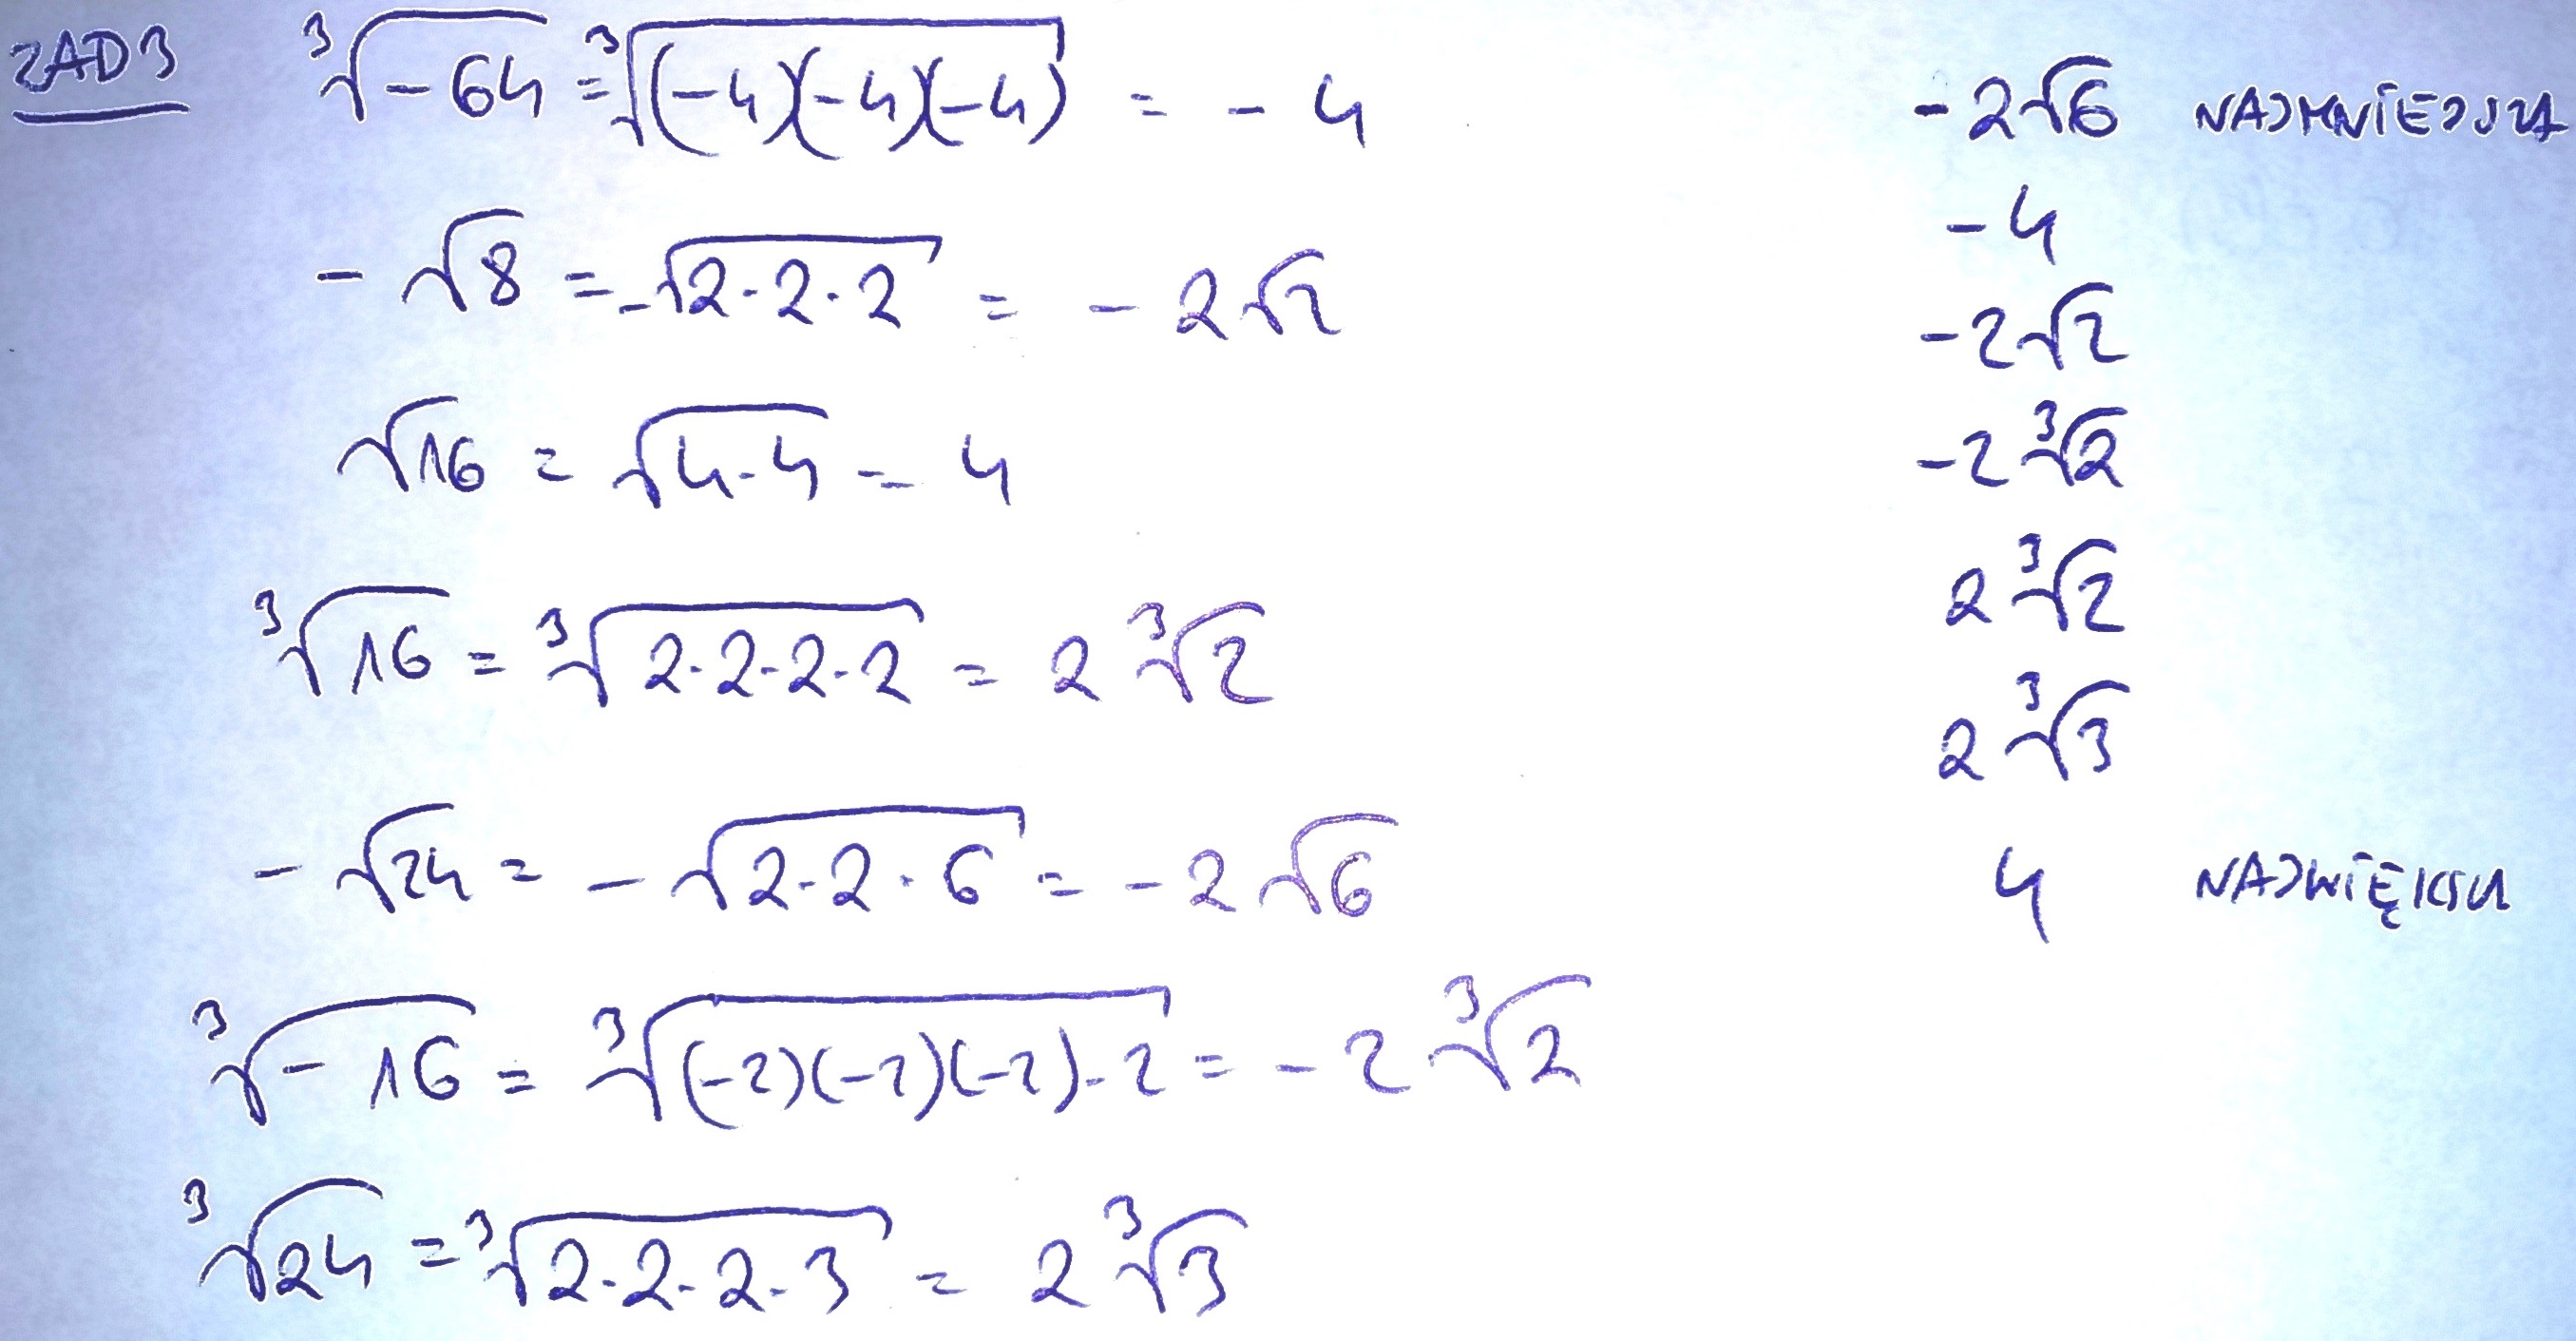 ZAD 3 ∛-64 = ∛(-4)(-4)(-4) = -4
-√8 = -√2·2·2 = -2√2
√16 = √4·4 = 4
∛16 = ∛2·2·2·2 = 2∛2
-√24 = -√2·2·6 = -2√6
∛-16 = ∛(-2)(-2)(-2)·2 = -2∛2
∛24 = ∛2·2·2·3 = 2∛3
-2√6 NAJMNIEJSZA
-4
-2√2
-2∛2
2∛2
2∛3
4 NAJWIĘKSZA